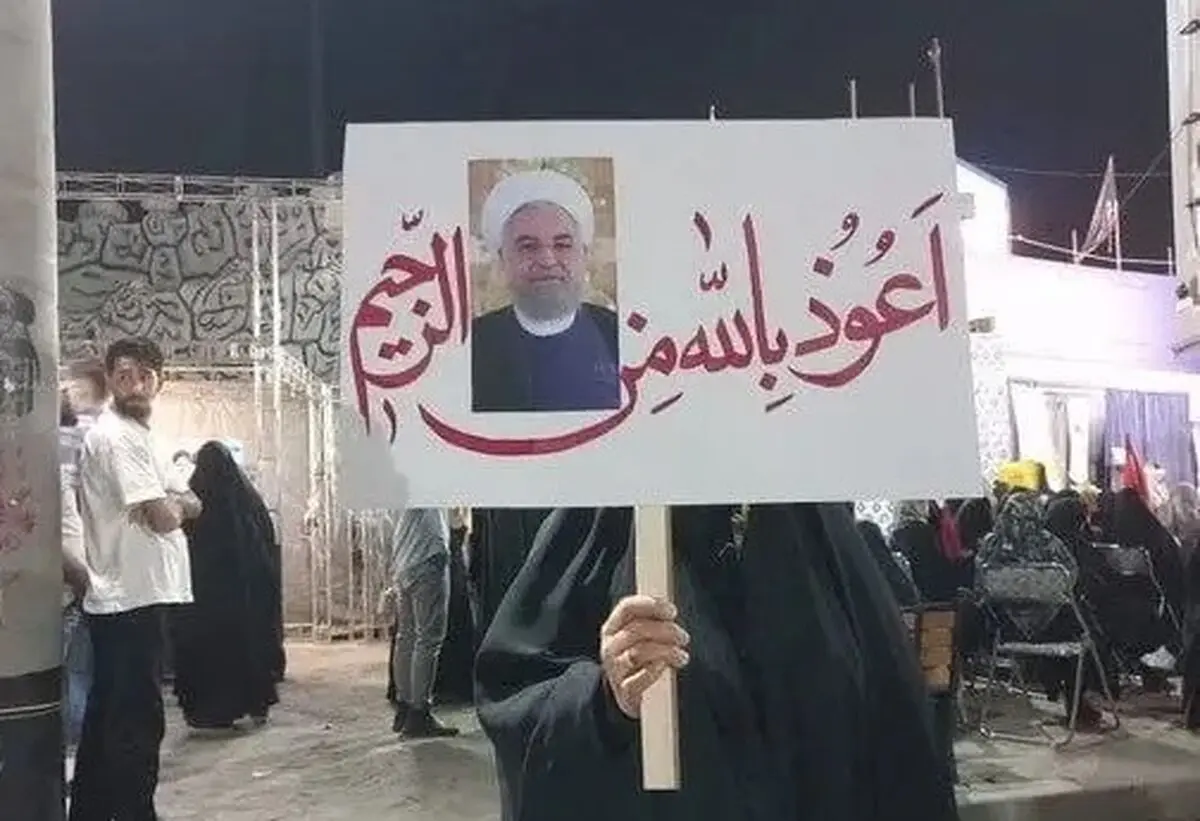 اَعُوذُ بِاللّٰه مِن الرّجیم